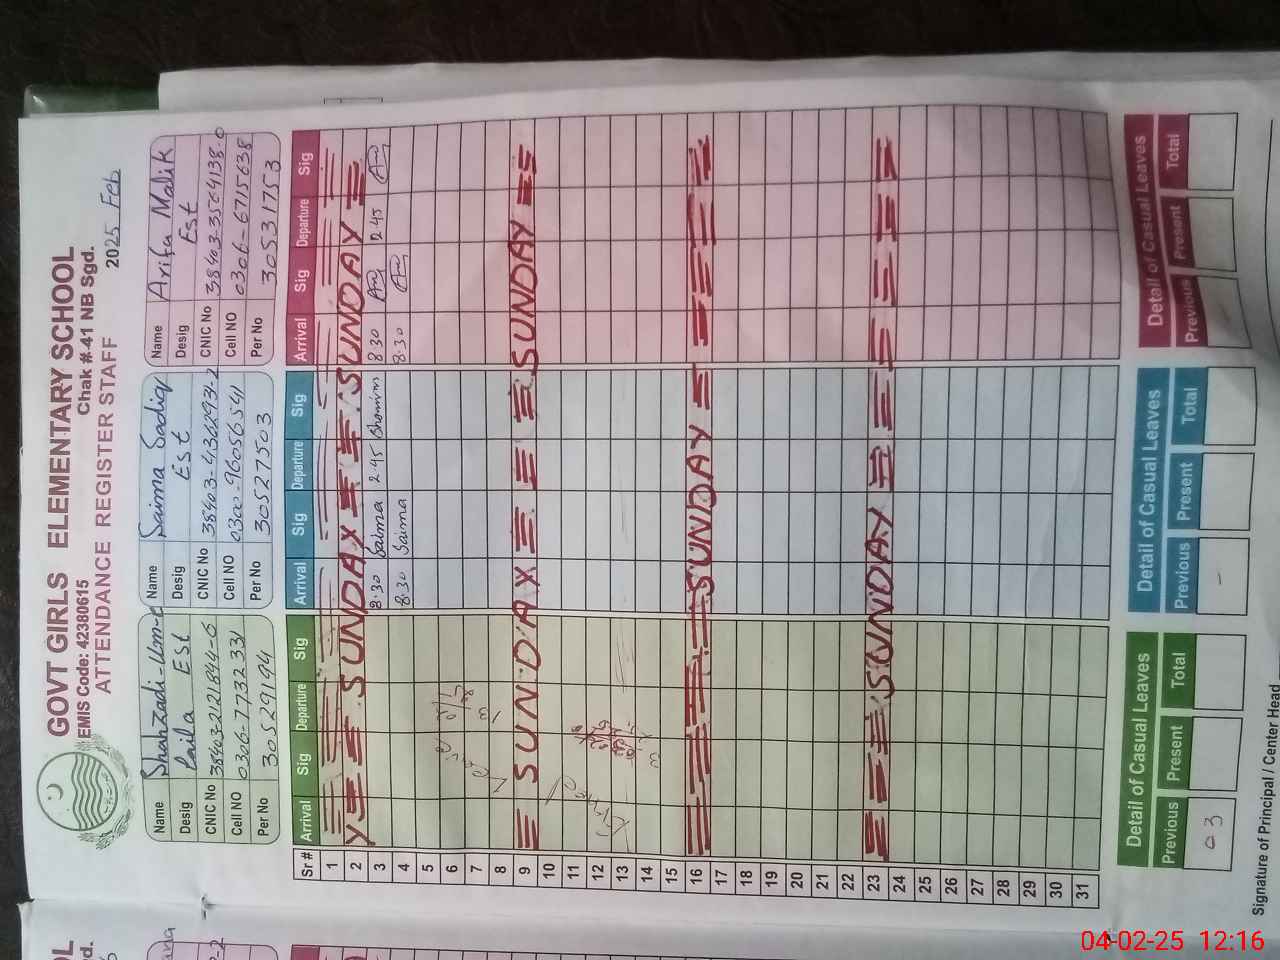 GOVT GIRLS ELEMENTARY SCHOOL
EMIS Code: 42380615 Chak # 41 NB Sgd.
ATTENDANCE REGISTER STAFF 2025 Feb
Name Shahzadi-Um-e
Desig Laila Est
CNIC No
Cell NO 0306-7732331
Per No 30529194
Name Saima Sadiq
Desig Est
CNIC No 38403-4362931-2
Cell NO 0300-9605654
Per No 30527503
Name Arifa Malik
Desig Est
CNIC No 38403-3564138-0
Cell NO 0306-6715638
Per No 30531753
Sr # Arrival Sig Departure Sig Arrival Sig Departure Sig Arrival Sig Departure Sig
1
2 SUNDAY SUNDAY
3 8.30 Saima 2.45 8.30 2.45
4 8.30 Saima 8.30
5
6
7
8
9 SUNDAY SUNDAY
10
11
12
13
14
15
16 SUNDAY
17
18
19
20
21
22
23 SUNDAY
24
25
26
27
28
29
30
31
Leave
Detail of Casual Leaves
Previous Present Total
03
Detail of Casual Leaves
Previous Present Total
-
Detail of Casual Leaves
Previous Present Total
Signature of Principal / Center Head
04-02-25 12:16